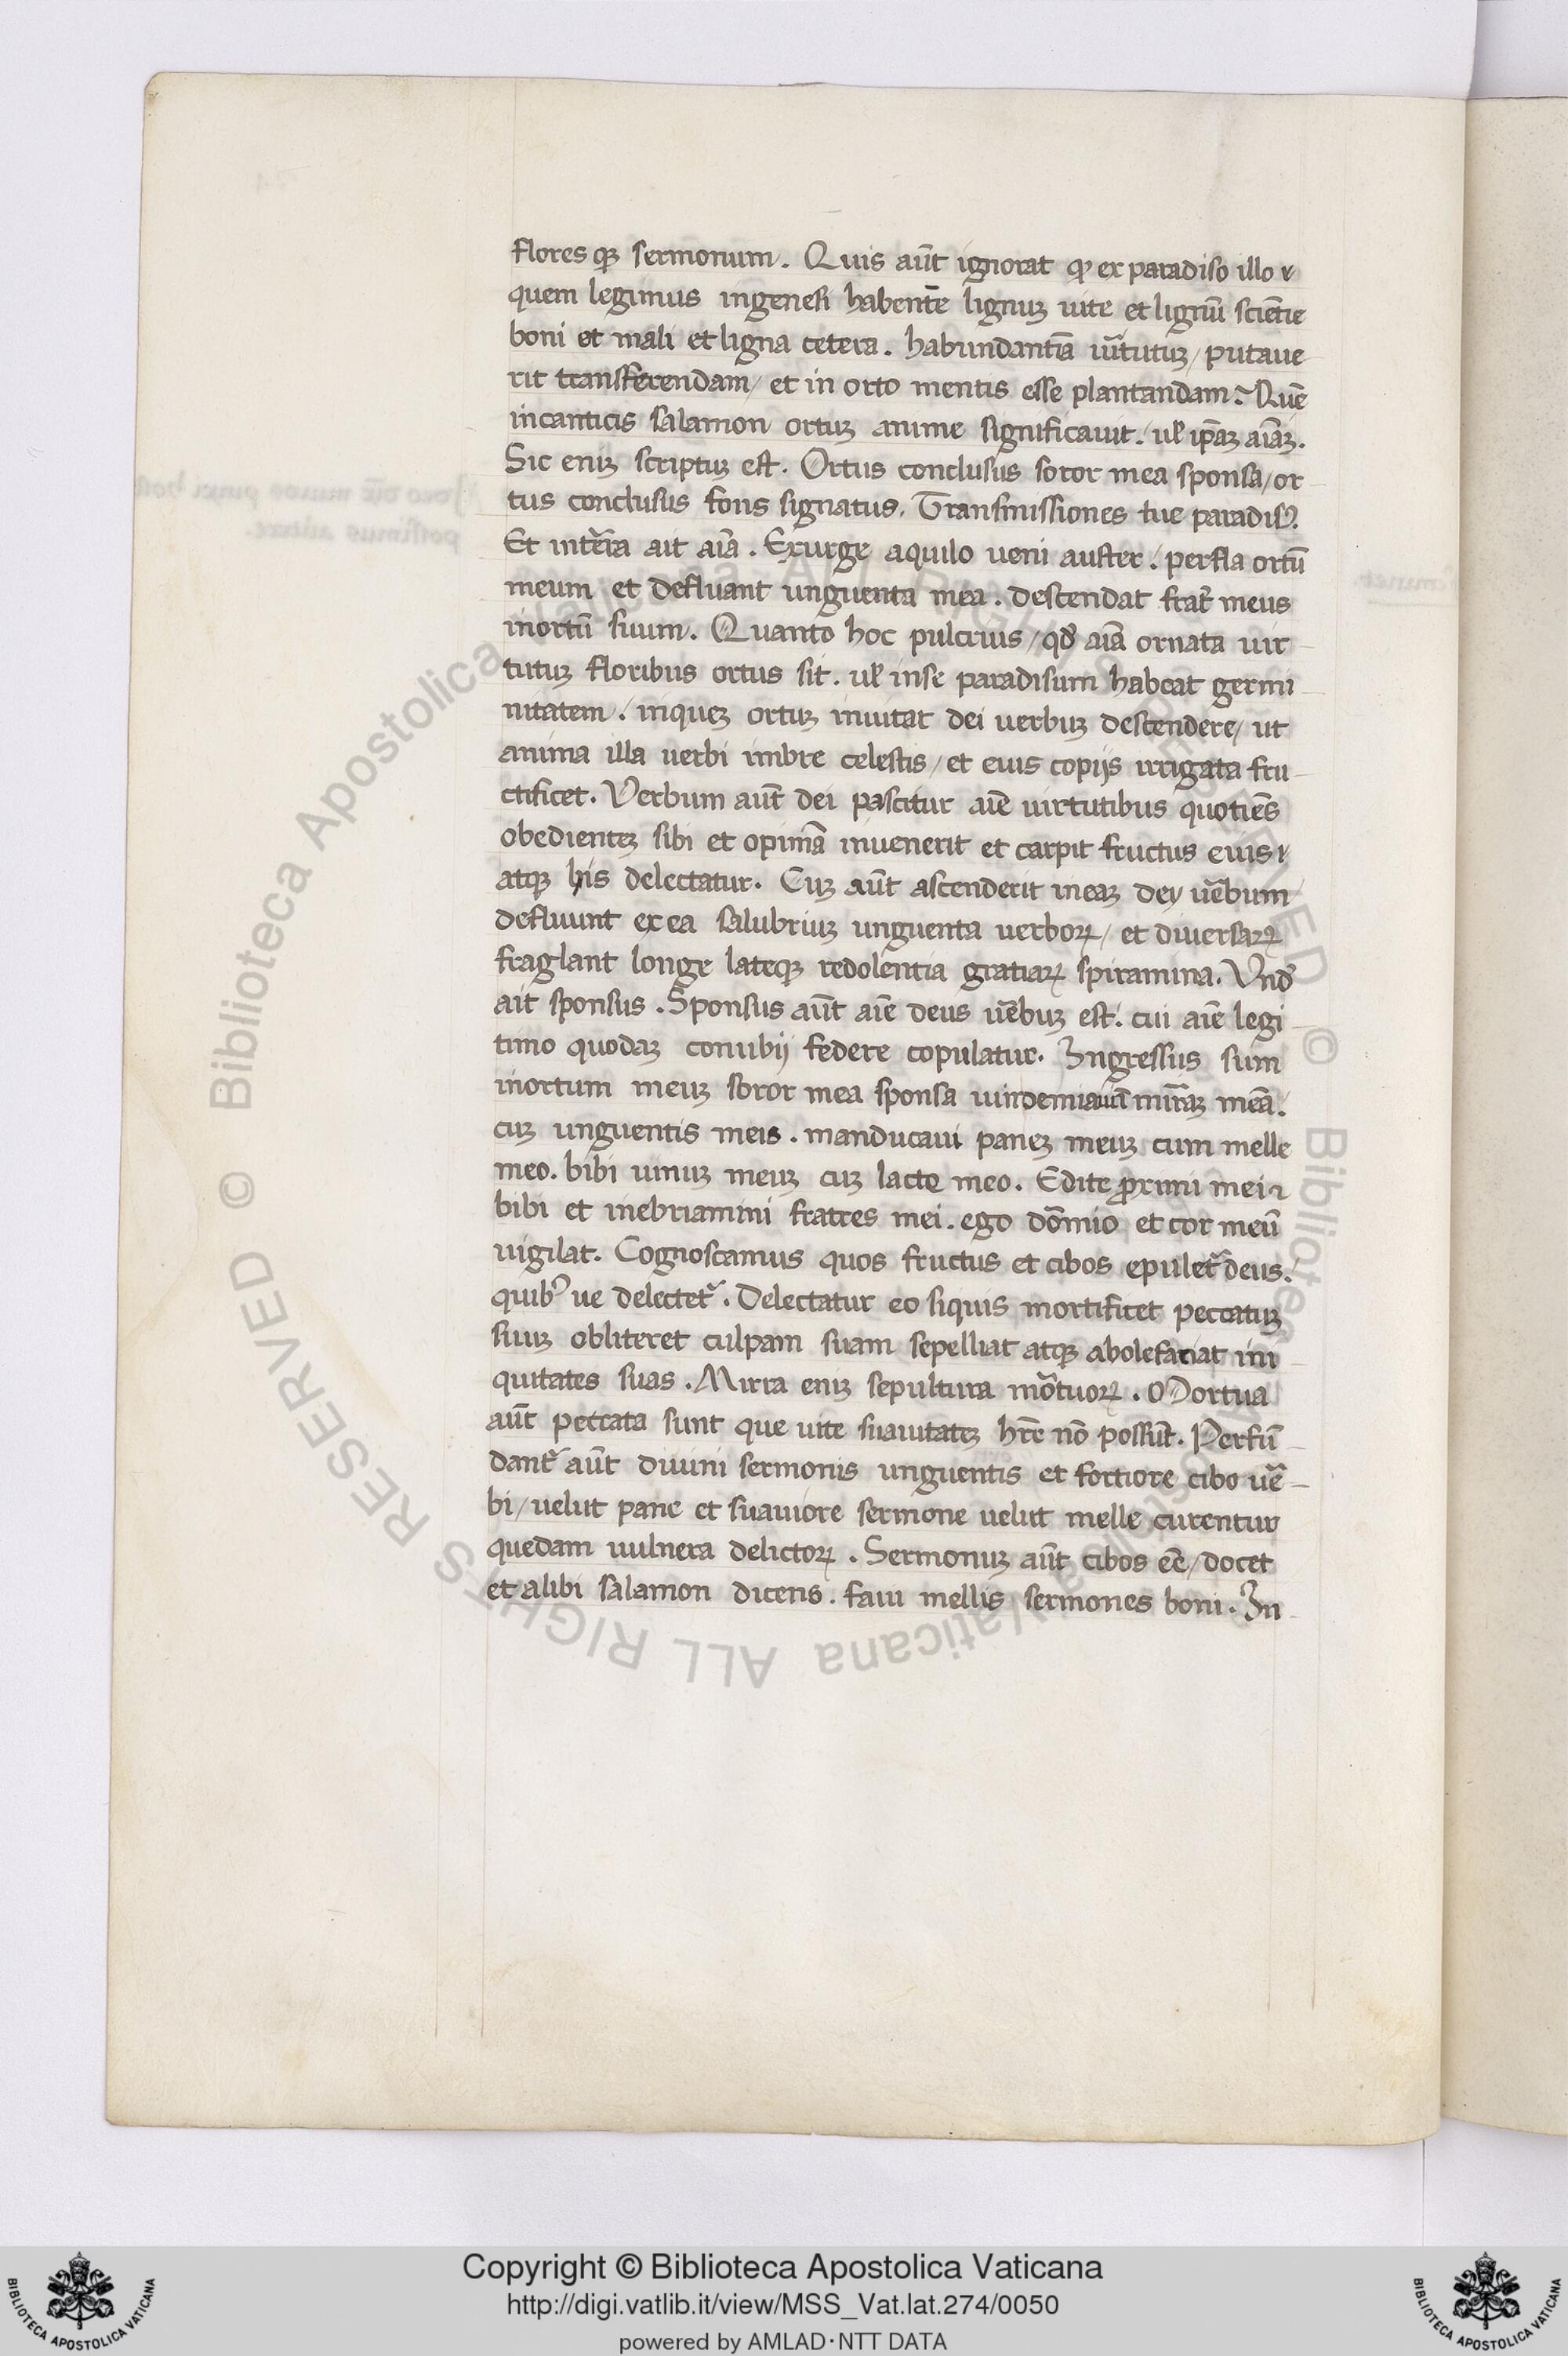 flores qꝫ sermonum. Quis aūt ignorat ꝙ ex paradiso illo
quem legimus ingenesi habentē lignuꝫ uite et lignū sciētie
boni et mali et ligna cetera. habundantiā uirtutuꝫ / putaue
rit transferendam / et in orto mentis esse plantandam? Quē
incanticis salamon ortuꝫ anime significauit. ul̓ ip̄aꝫ aīaꝫ.
Sic eniꝫ scriptuꝫ est. Ortus conclusus soror mea sponsa / or
tus conclusus fons signatus. Transmissiones tue paradisꝰ.
Et int̄ea ait aīa. Exurge aquilo ueni auster. perfla ortū
meum et defluant unguenta mea. descendat frat̄ meus
inortū suum. Quanto hoc pulcrius / qd̓ aīa ornata uir
tutuꝫ floribus ortus sit. ul̓ inse paradisum habeat germi
nitatem. inqueꝫ ortuꝫ inuitat dei uerbuꝫ descendere / ut
anima illa uerbi imbre celestis / et eius copijs irrigata fru
ctificet. Verbum aūt dei pascitur aīe uirtutibus quotiēs
obedienteꝫ sibi et opimā inuenerit et carpit fructus eius
atqꝫ his delectatur. Cuꝫ aūt ascenderit ineaꝫ dey uēbum
defluunt ex ea salubriuꝫ unguenta uerboꝝ / et diuersaꝝ
fraglant longe lateqꝫ redolentia gratiaꝝ spiramina. Vnd̓
ait sponsus. Sponsus aūt aīe deus uēbuꝫ est. cui aīe legi
timo quodaꝫ conubij federe copulatur. Ingressus sum
inortum meuꝫ soror mea sponsa uindemiaui mirraꝫ meā.
cuꝫ unguentis meis. manducaui paneꝫ meuꝫ cum melle
meo. bibi uinuꝫ meuꝫ cuꝫ lacte meo. Edite proximi mei
bibi et inebriamini fratres mei. ego dōmio et cor meū
uigilat. Cognoscamus quos fructus et cibos epulet̄ deus.
quibꝰ ue delectet̄. Delectatur eo siquis mortificet peccatuꝫ
suuꝫ obliteret culpam suam sepelliat atqꝫ abolefaciat ini
quitates suas. Mirra eniꝫ sepultura mōtuoꝝ. Mortua
aūt peccata sunt que uite suauitateꝫ hr̄e nō possūt. Perfū
dant̄ aūt diuini sermonis unguentis et fortiore cibo uē
bi / uelut pane et suauiore sermone uelut melle curentur
quedam uulnera delictoꝝ. Sermonuꝫ aūt cibos eē / docet
et alibi salamon dicens. faui mellis sermones boni. In
© Biblioteca Apostolica Vaticana ALL RIGHTS RESERVED
Copyright © Biblioteca Apostolica Vaticana
http://digi.vatlib.it/view/MSS_Vat.lat.274/0050
powered by AMLAD·NTT DATA
BIBLIOTECA APOSTOLICA VATICANA
BIBLIOTECA APOSTOLICA VATICANA